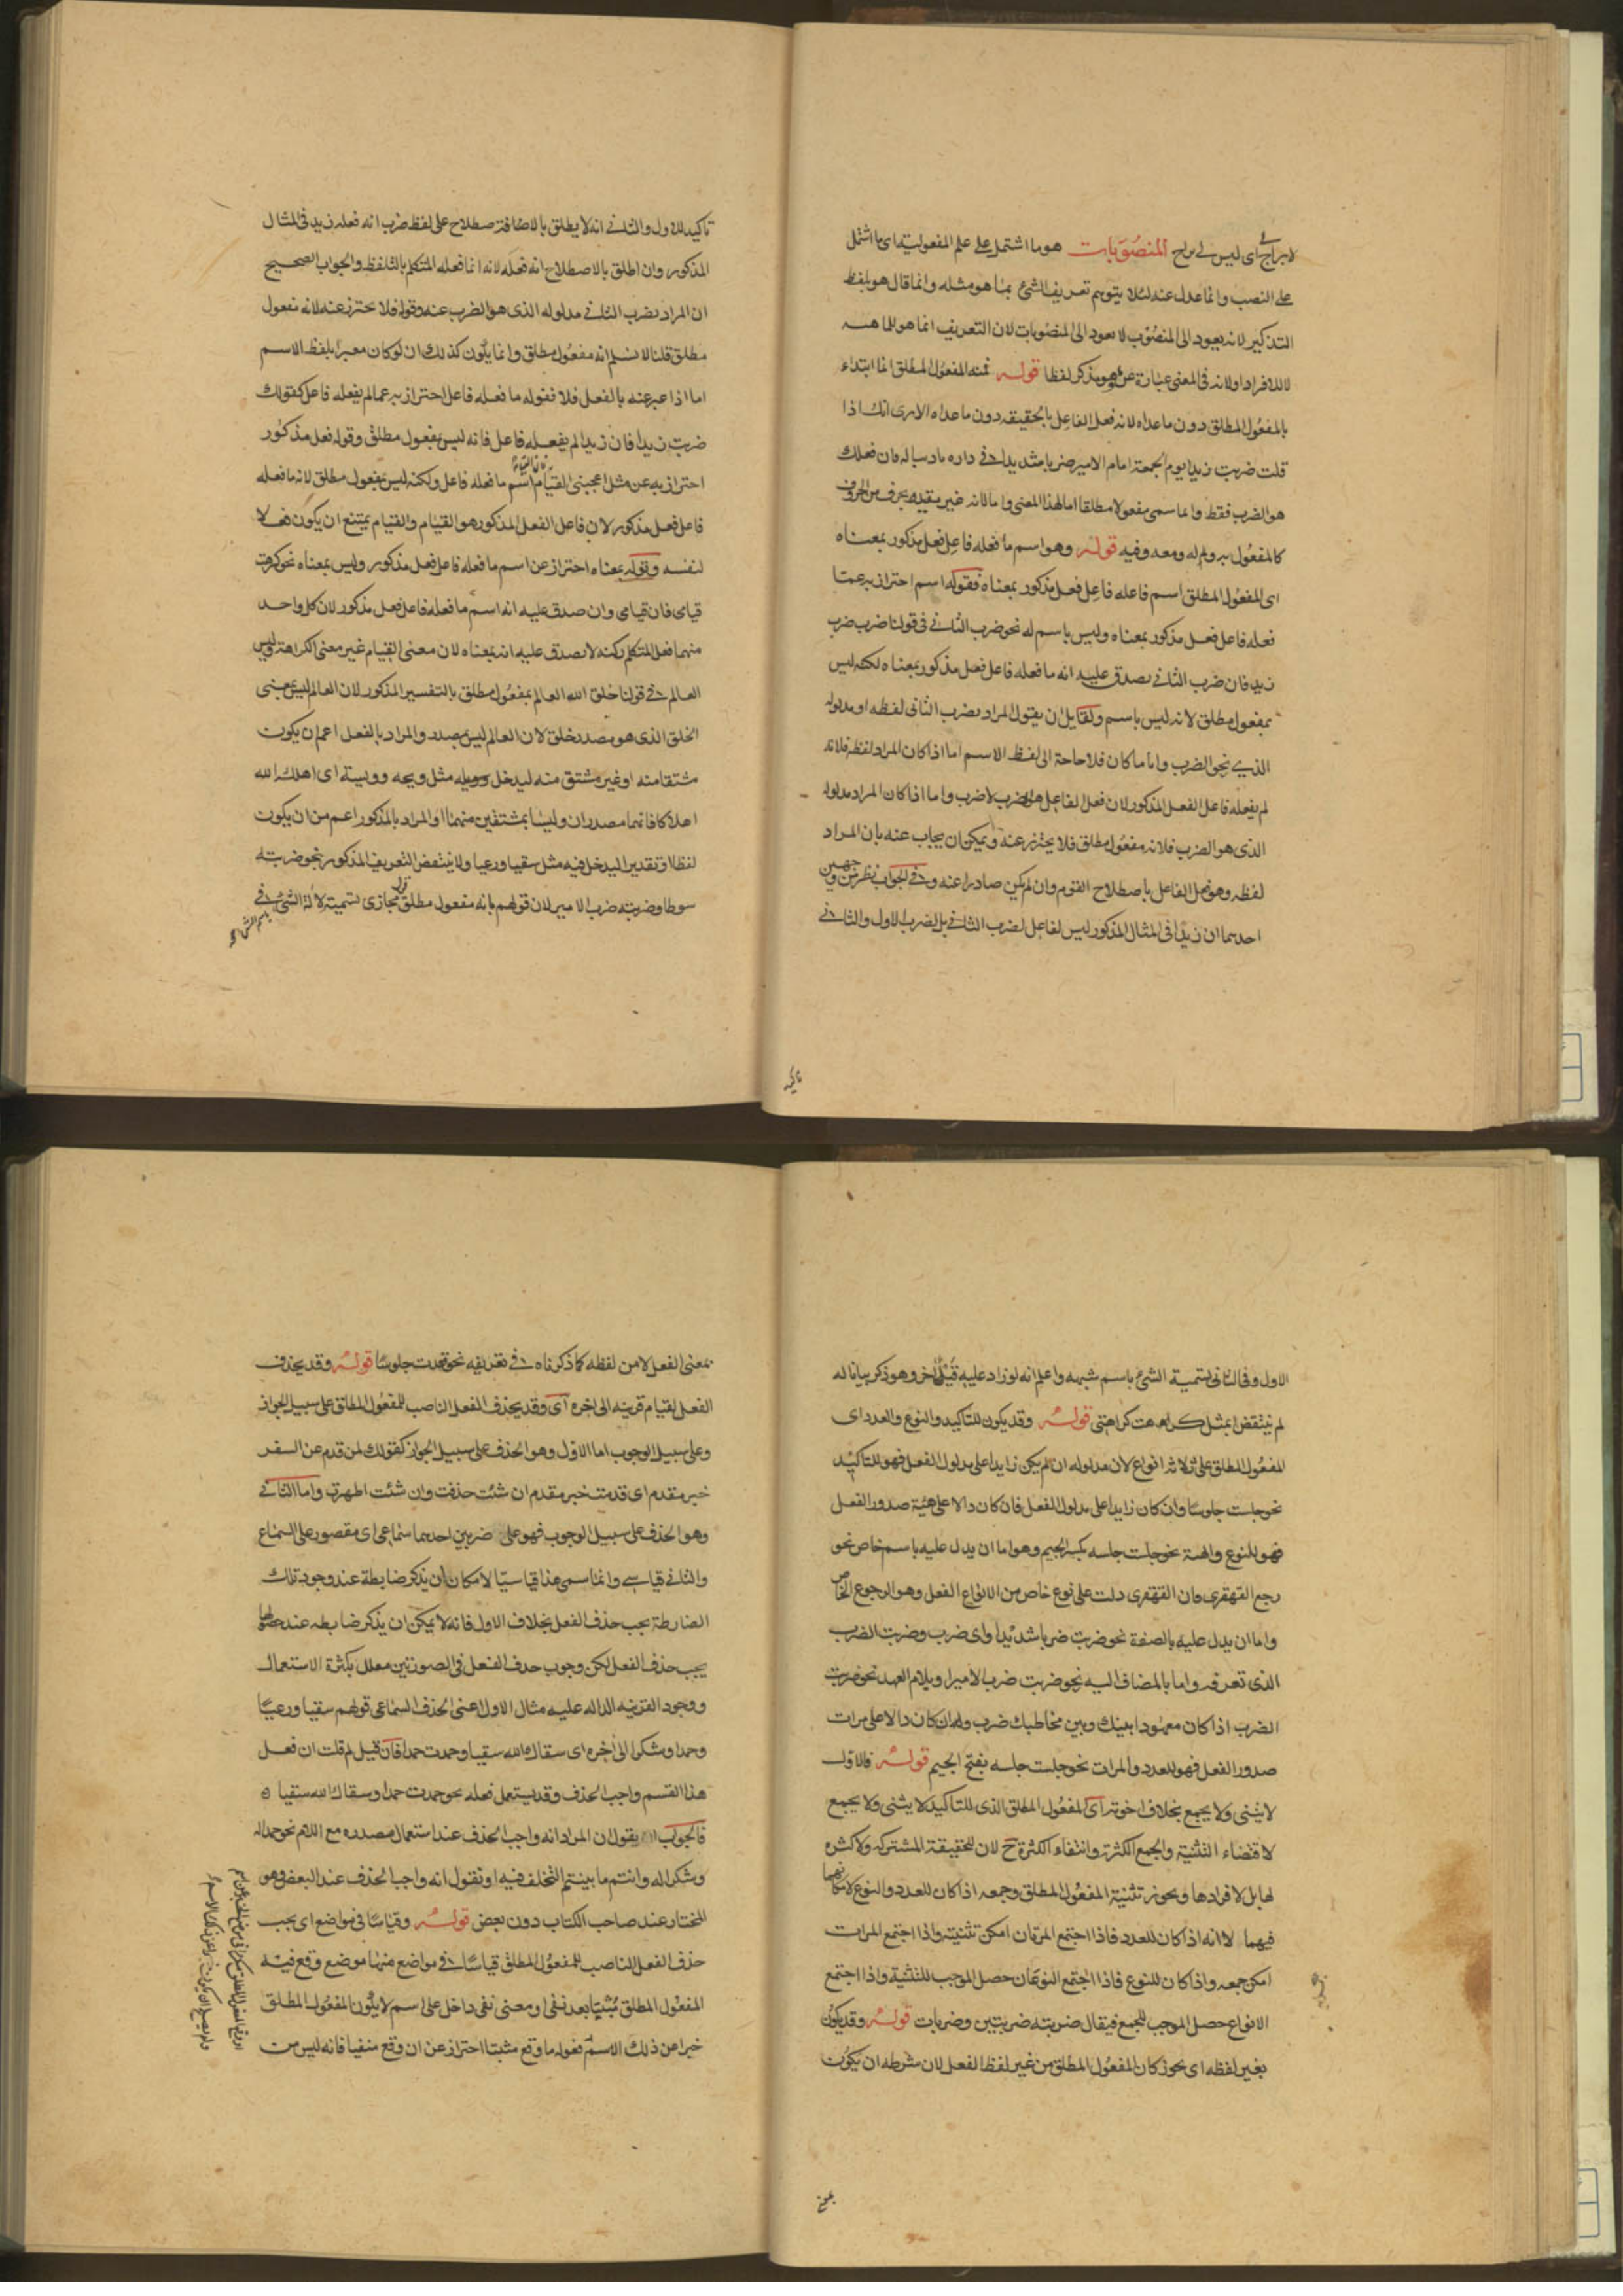 لا براح اى ليس لى براح المنصوبات هو ما اشتمل على علم المفعولية اى ما اشتمل
على النصب وانما عدل عنه لئلا يتوهم تعريف الشئ بما هو مثله وانما قال هو بلفظ
التذكير لانه يعود الى المنصوب لا يعود الى المنصوبات لان التعريف انما هو للماهية
لا للافراد اولانه فى المعنى عبارة عن ما وهو مذكر لفظا قوله فمنه المفعول المطلق انما ابتداء
بالمفعول المطلق دون ما عداه لانه فعل الفاعل بالحقيقه دون ما عداه الا رى انك اذا
قلت ضربت زيدا يوم الجمعة امام الامير ضربا شديدا فى داره فان فعلك
هو الضرب فقط وانما سمى مفعولا مطلقا اما لهذا المعنى واما لانه غير مقيد بحرف من الحروف
كالمفعول به وله ومعه وفيه قوله وهو اسم ما فعله فاعل فعل مذكور بمعناه
اى المفعول المطلق اسم فاعله فاعل فعل مذكور بمعناه فقوله اسم احتراز به عما
فعله فاعل فعل مذكور بمعناه وليس باسم له نحو ضرب الثانى فى قولنا ضرب ضرب
زيد فان ضرب الثانى يصدق عليه انه ما فعله فاعل فعل مذكور بمعناه لكنه ليس
بمفعول مطلق لانه ليس باسم ولقايل ان يقول المراد بضرب الثانى لفظه او مدلوله
الذى نحو الضرب واما ما كان فلا حاجة الى لفظ الاسم اما اذا كان المراد لفظه فلانه
لم يفعله فاعل الفعل المذكور لان فعل الفاعل هو الضرب لا ضرب واما اذا كان المراد مدلوله
الذى هو الضرب فلانه مفعول مطلق فلا يحترز عنه ويمكن ان يجاب عنه بان المراد
لفظه وهو فعل الفاعل باصطلاح القوم وان لم يكن صادرا عنه وفى الجواب نظر من وجهين
احدهما ان زيدا فى المثال المذكور ليس لفاعل لضرب الثانى بل لضرب الاول والثانى
تاكيد للاول والثانى انه لا يطلق بالاضافة صطلاح على لفظ ضرب انه فعله زيد فى المثال
المذكور وان اطلق بالاصطلاح انه فعله لانه انما فعله المتكلم بالتلفظ والجواب الصحيح
ان المراد بضرب الثانى مدلوله الذى هو الضرب عنه وقوله فلا حترز عنه لانه مفعول
مطلق قلنا لا نسلم انه مفعول مطلق وانما يكون كذلك ان لو كان معبرا بلفظ الاسم
اما اذا عبر عنه بالفعل فلا فقوله ما فعله فاعل احتراز به عما لم يفعله فاعل كقولك
ضربت زيدا فان زيدا لم يفعله فاعل فانه ليس بمفعول مطلق وقوله فعل مذكور
احتراز به عن مثل اعجبنى القيام اسم ما فعله فاعل ولكنه ليس بمفعول مطلق لانه ما فعله
فاعل فعل مذكور لان فاعل الفعل المذكور هو القيام والقيام يمتنع ان يكون فعلا
لنفسه وقوله بمعناه احتراز عن اسم ما فعله فاعل فعل مذكور وليس بمعناه نحو كرهت
قيامى فان قيامى وان صدق عليه انه اسم ما فعله فاعل فعل مذكور لان كل واحد
منهما فعل المتكلم لكنه لا يصدق عليه انه بمعناه لان معنى القيام غير معنى الكراهة وليس
العالم فى قولنا خلق الله العالم بمفعول مطلق بالتفسير المذكور لان العالم ليس بمعنى
الخلق الذى هو مصدر خلق لان العالم ليس بمصدر والمراد بالفعل اعم ان يكون
مشتقا منه او غير مشتق منه ليدخل ويله مثل ويحه وويسه اى اهلك الله
اهلاكا فانهما مصدران وليسا بمشتقين منهما او المراد بالمذكور اعم من ان يكون
لفظا او تقديرا ليدخل فيه مثل سقيا ورعيا ولا ينتقض التعريف المذكور بنحو ضربته
سوطا وضربته ضرب الامير لان قولهم بانه مفعول مطلق قول مجازى تسمية لآلة الشئ فى
باسم الشئ
تاكيد
الاول وفى الثانى تسمية الشئ باسم شبهه واعلم انه لو زاد عليه قيد آخر وهو ذكر بيانا له
لم ينتقض بمثل كرهت كراهتى قوله وقد يكون للتاكيد والنوع والعدد اى
المفعول المطلق على ثلاثه انواع لان مدلوله ان لم يكن زايدا على مدلول الفعل فهو للتاكيد
نحو جلست جلوسا وان كان زايدا على مدلول الفعل فان كان دالا على هيئة صدور الفعل
فهو للنوع والهيئة نحو جلست جلسه بكسر الجيم وهو اما ان يدل عليه باسم خاص نحو
رجع القهقرى فان القهقرى دلت على نوع خاص من الانواع الفعل وهو الرجوع الخاص
واما ان يدل عليه بالصفة نحو ضربت ضربا شديدا واى ضرب وضربت الضرب
الذى تعرفه واما بالمضاف اليه نحو ضربت ضرب الامير او بلام العهد نحو ضربت
الضرب اذا كان معهودا بينك وبين مخاطبك ضرب وان كان دالا على مرات
صدور الفعل فهو للعدد والمرات نحو جلست جلسه بفتح الجيم قوله فالاول
لا يثنى ولا يجمع بخلاف اخوته اى المفعول المطلق الذى للتاكيد لا يثنى ولا يجمع
لاقتضاء التثنية والجمع الكثرة وانتفاء الكثرة ح لان للحقيقة المشتركه ولا كثره
لها بل لافرادها ويجوز تثنية المفعول المطلق وجمعه اذا كان للعدد والنوع لامكانهما
فيهما لا انه اذا كان للعدد فاذا اجتمع المرتان امكن تثنيته واذا اجتمع المرات
امكن جمعه واذا كان للنوع فاذا اجتمع النوعان حصل الموجب للتثنية واذا اجتمع
الانواع حصل الموجب للجمع فيقال ضربته ضربتين وضربات قوله وقد يكون
بغير لفظه اى يجوز كان المفعول المطلق من غير لفظ الفعل لان شرطه ان يكون
بمعنى
بمعنى الفعل لا من لفظه كما ذكرناه فى تعريفه نحو قعدت جلوسا قوله وقد يحذف
الفعل لقيام قرينه الى اخره اى وقد يحذف الفعل الناصب للمفعول المطلق على سبيل الجواز
وعلى سبيل الوجوب اما الاول وهو الحذف على سبيل الجواز كقولك لمن قدم عن السفر
خير مقدم اى قدمت خير مقدم ان شئت حذفت وان شئت اظهرت واما الثانى
وهو الحذف على سبيل الوجوب فهو على ضربين احدهما سماعى اى مقصور على السماع
والثانى قياسى وانما سمى هذا قياسيا لامكان ان يذكر ضابطة عند وجود تلك
الضابطة يجب حذف الفعل بخلاف الاول فانه لا يمكن ان يذكر ضابطه عند حصولها
يجب حذف الفعل لكن وجوب حذف الفعل فى الصورتين معلل بكثرة الاستعمال
ووجود القرينه الداله عليه مثال الاول اعنى الحذف السماعى قولهم سقيا ورعيا
وحمدا وشكرا الى اخره اى سقاك الله سقيا وحمدت حمدا فان قيل لم قلت ان فعل
هذا القسم واجب الحذف وقد يستعمل فعله نحو حمدت حمدا وسقاك الله سقيا
فالجواب يقول ان المراد انه واجب الحذف عند استعمال مصدره مع اللام نحو حمدا له
وشكرا له وانتم ما بينتم التخلف فيه او نقول انه واجب الحذف عند البعض وهو
المختار عند صاحب الكتاب دون بعض قوله وقياسا فى مواضع اى يجب
حذف الفعل الناصب للمفعول المطلق قياسا فى مواضع منها موضع وقع فيه
المفعول المطلق مثبتا بعد نفى او معنى نفى داخل على اسم لا يكون المفعول المطلق
خبرا عن ذلك الاسم فقوله ما وقع مثبتا احتراز عن ان وقع منفيا فانه ليس من